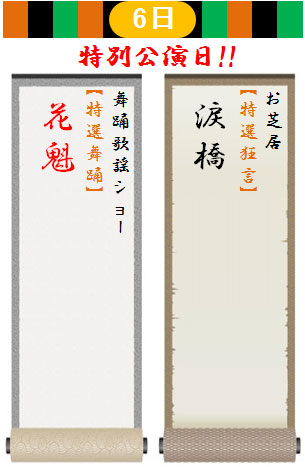 6日
特別公演日!!
お芝居
【特選狂言】
涙橋
舞踊歌謡ショー
【特選舞踊】
花魁